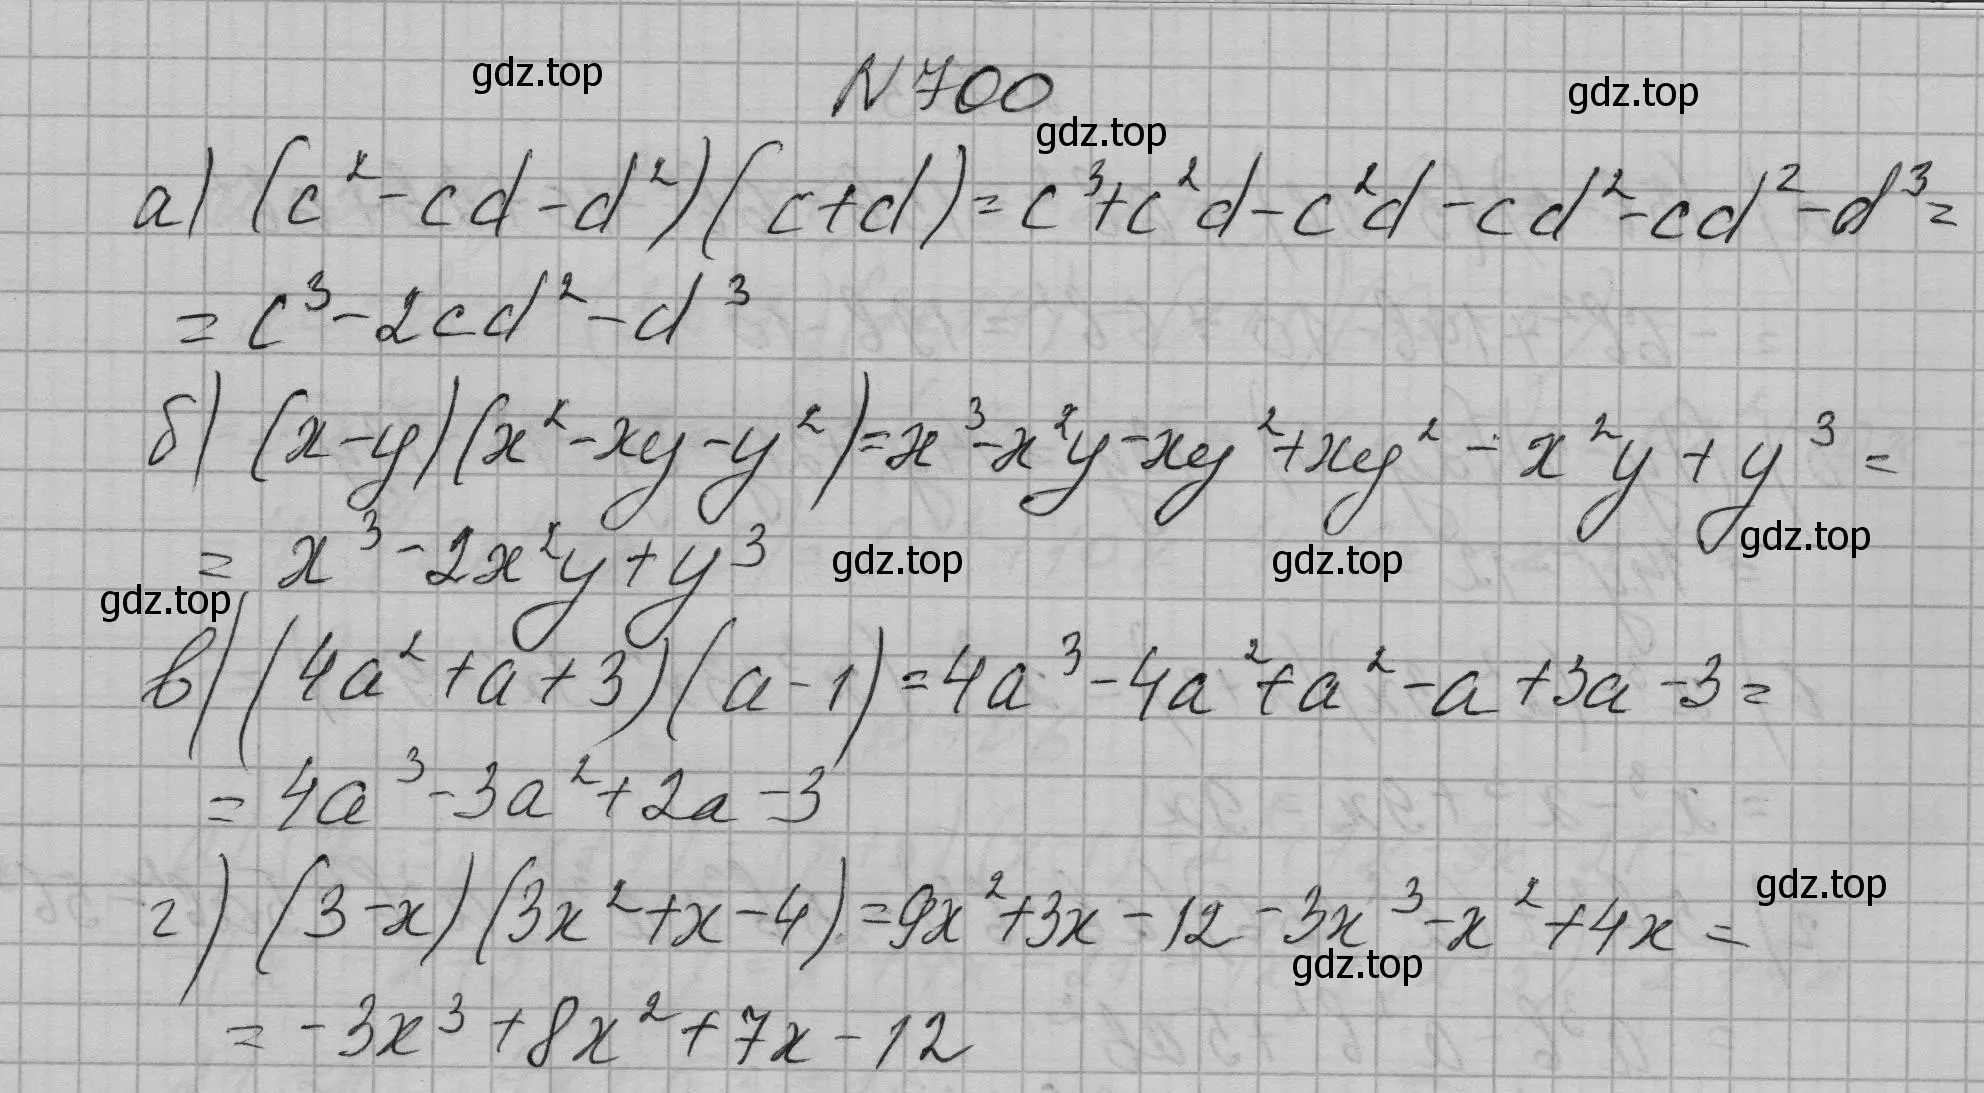 gdz.top
N 700
gdz.top
gdz.top
а) (c² - cd - d²)(c + d) = c³ + c²d - c²d - cd² - cd² - d³ =
= c³ - 2cd² - d³
б) (x - y)(x² - xy - y²) = x³ - x²y - xy² + xy² - x²y + y³ =
gdz.top
= x³ - 2x²y + y³
gdz.top
gdz.top
gdz.top
в) (4a² + a + 3)(a - 1) = 4a³ - 4a² + a² - a + 3a - 3 =
= 4a³ - 3a² + 2a - 3
г) (3 - x)(3x² + x - 4) = 9x² + 3x - 12 - 3x³ - x² + 4x =
gdz.top
gdz.top
= -3x³ + 8x² + 7x - 12